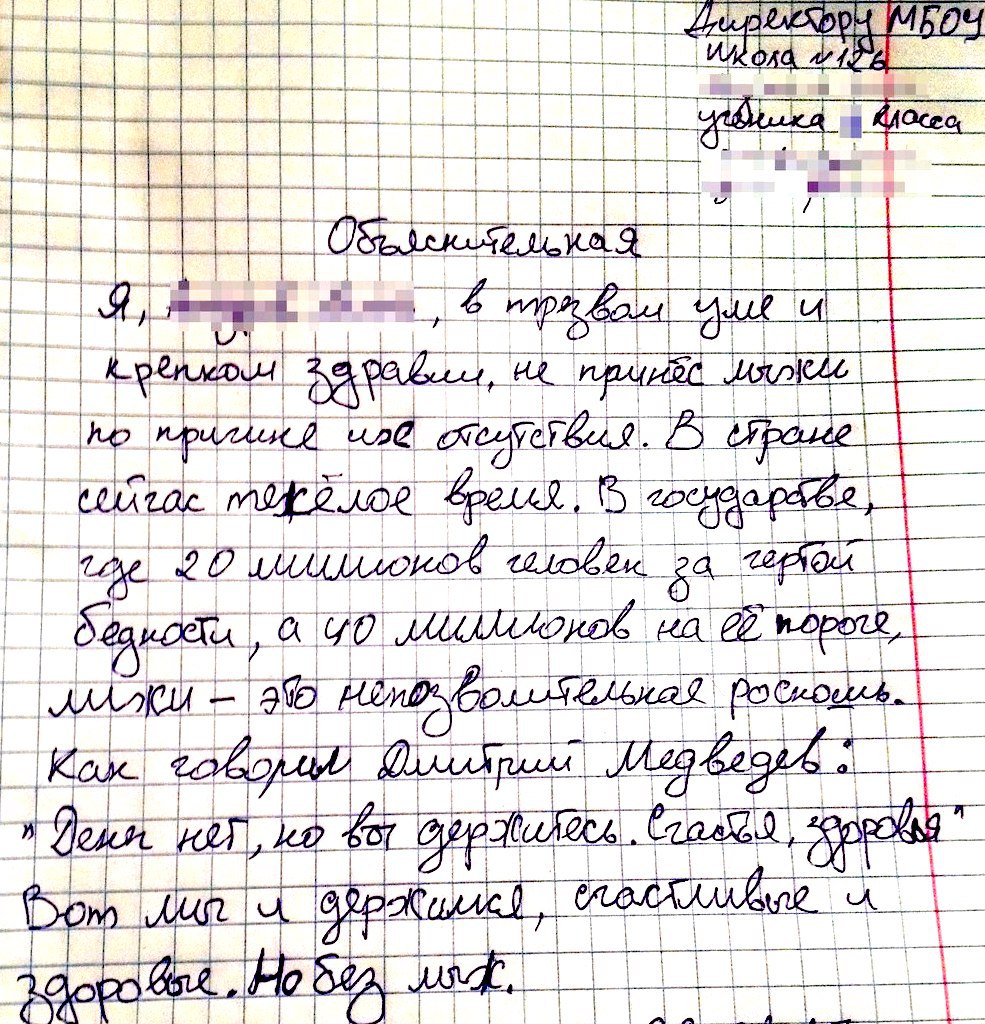 Директору МБОУ
школа №126
ученика класса
Объяснительная
Я, , в трезвом уме и
крепком здравии, не принёс лыжи
по причине их отсутствия. В стране
сейчас тяжёлое время. В государстве,
где 20 миллионов человек за чертой
бедности, а 40 миллионов на её пороге,
лыжи – это непозволительная роскошь.
Как говорил Дмитрий Медведев:
"Денег нет, но вы держитесь. Счастья, здоровья"
Вот мы и держимся, счастливые и
здоровые. Но без лыж.